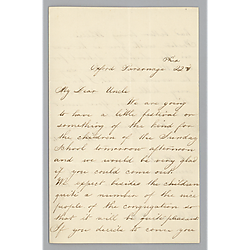 My Dear Uncle
We are going
to have a little festival or
something of the kind for
the children of the Sunday
School tomorrow afternoon
and we would be very glad
if you could come out.
We expect besides the children
quite a number of the nice
people of the congregation so
that it will be quite pleasant.
If you decide to come you